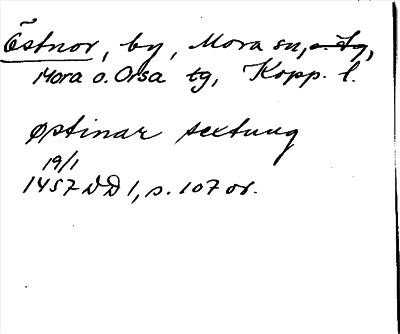 Östnor, by, Mora sn, o. tg,
Mora o. Orsa tg, Kopp. l.
Østinar sextung
19/1
1457 DD 1, s. 107 or.